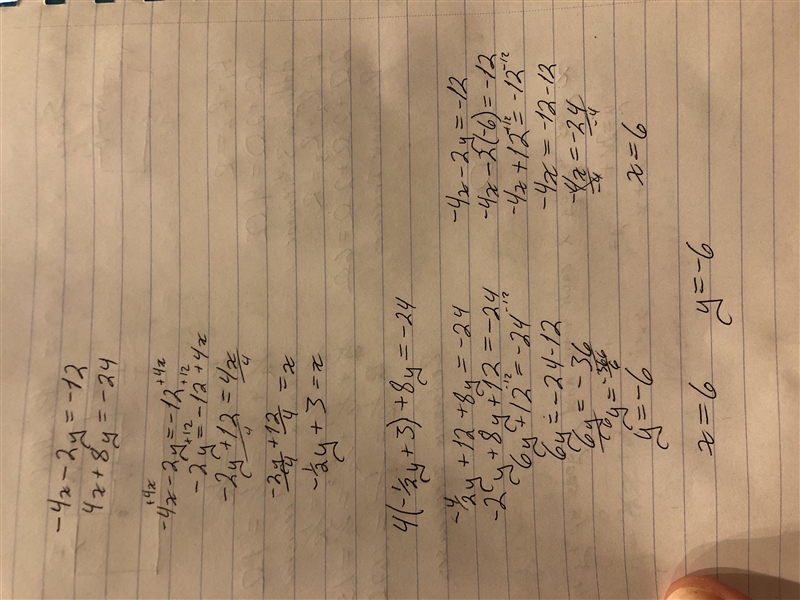 -4x - 2y = -12
4x + 8y = -24
+4x +4x
-4x - 2y = -12
+12 +12
-2y = -12 + 4x
-2y + 12 = 4x
4 4
-2y + 12 = x
4 4
-1/2y + 3 = x
4(-1/2y + 3) + 8y = -24
-4/2y + 12 + 8y = -24
-2y + 8y + 12 = -24
-12 -12
6y + 12 = -24
6y = -24 - 12
6y = -36
y = -6
-4x - 2y = -12
-4x - 2(-6) = -12
-12 -12
-4x + 12 = -12
-4x = -12 - 12
-4x = -24
-4 -4
x = 6
x = 6 y = -6